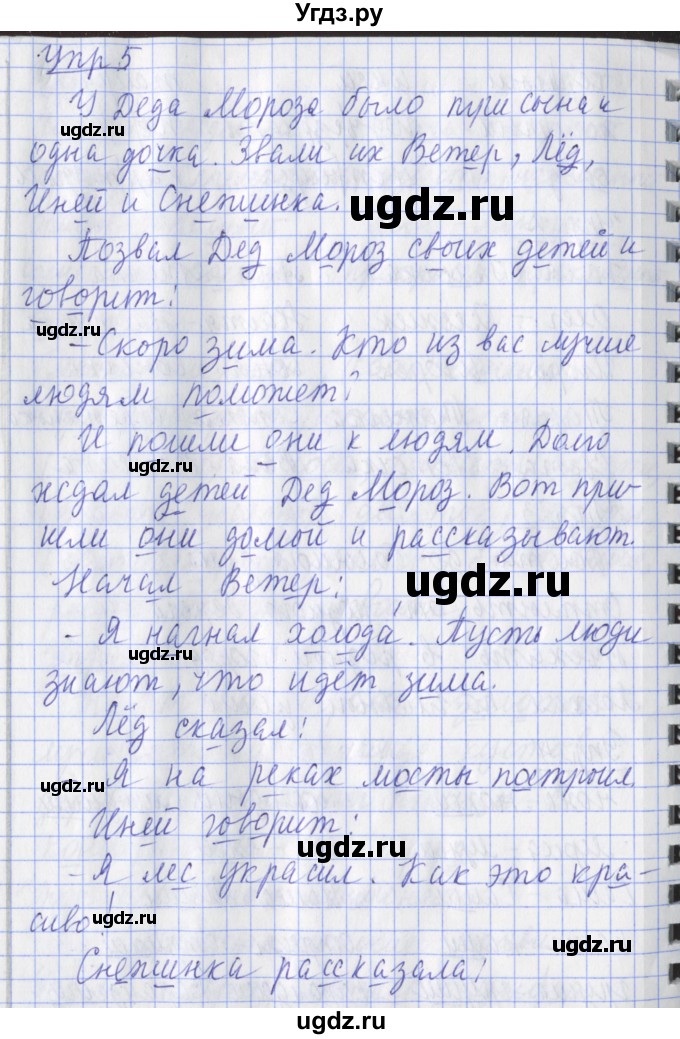 Угдз.ру
Упр 5
У Деда Мороза было три сына и
ugdz.ru
одна дочка. Звали их Ветер, Лёд,
Иней и Снежинка.
ugdz.ru
Позвал Дед Мороз своих детей и
говорит:
ugdz.ru
- Скоро зима. Кто из вас лучше
людям поможет?
ugdz.ru
И пошли они к людям. Долго
ugdz.ru
ждал детей Дед Мороз. Вот при-
шли они домой и рассказывают.
Начал Ветер:
ugdz.ru
- Я нагнал холода. Пусть люди
ugdz.ru
знают, что идёт зима.
Лёд сказал:
- Я на реках мосты построил.
ugdz.ru
Иней говорит:
ugdz.ru
- Я лес украсил. Как это кра-
сиво!
ugdz.ru
ugdz.ru
Снежинка рассказала:
ugdz.ru